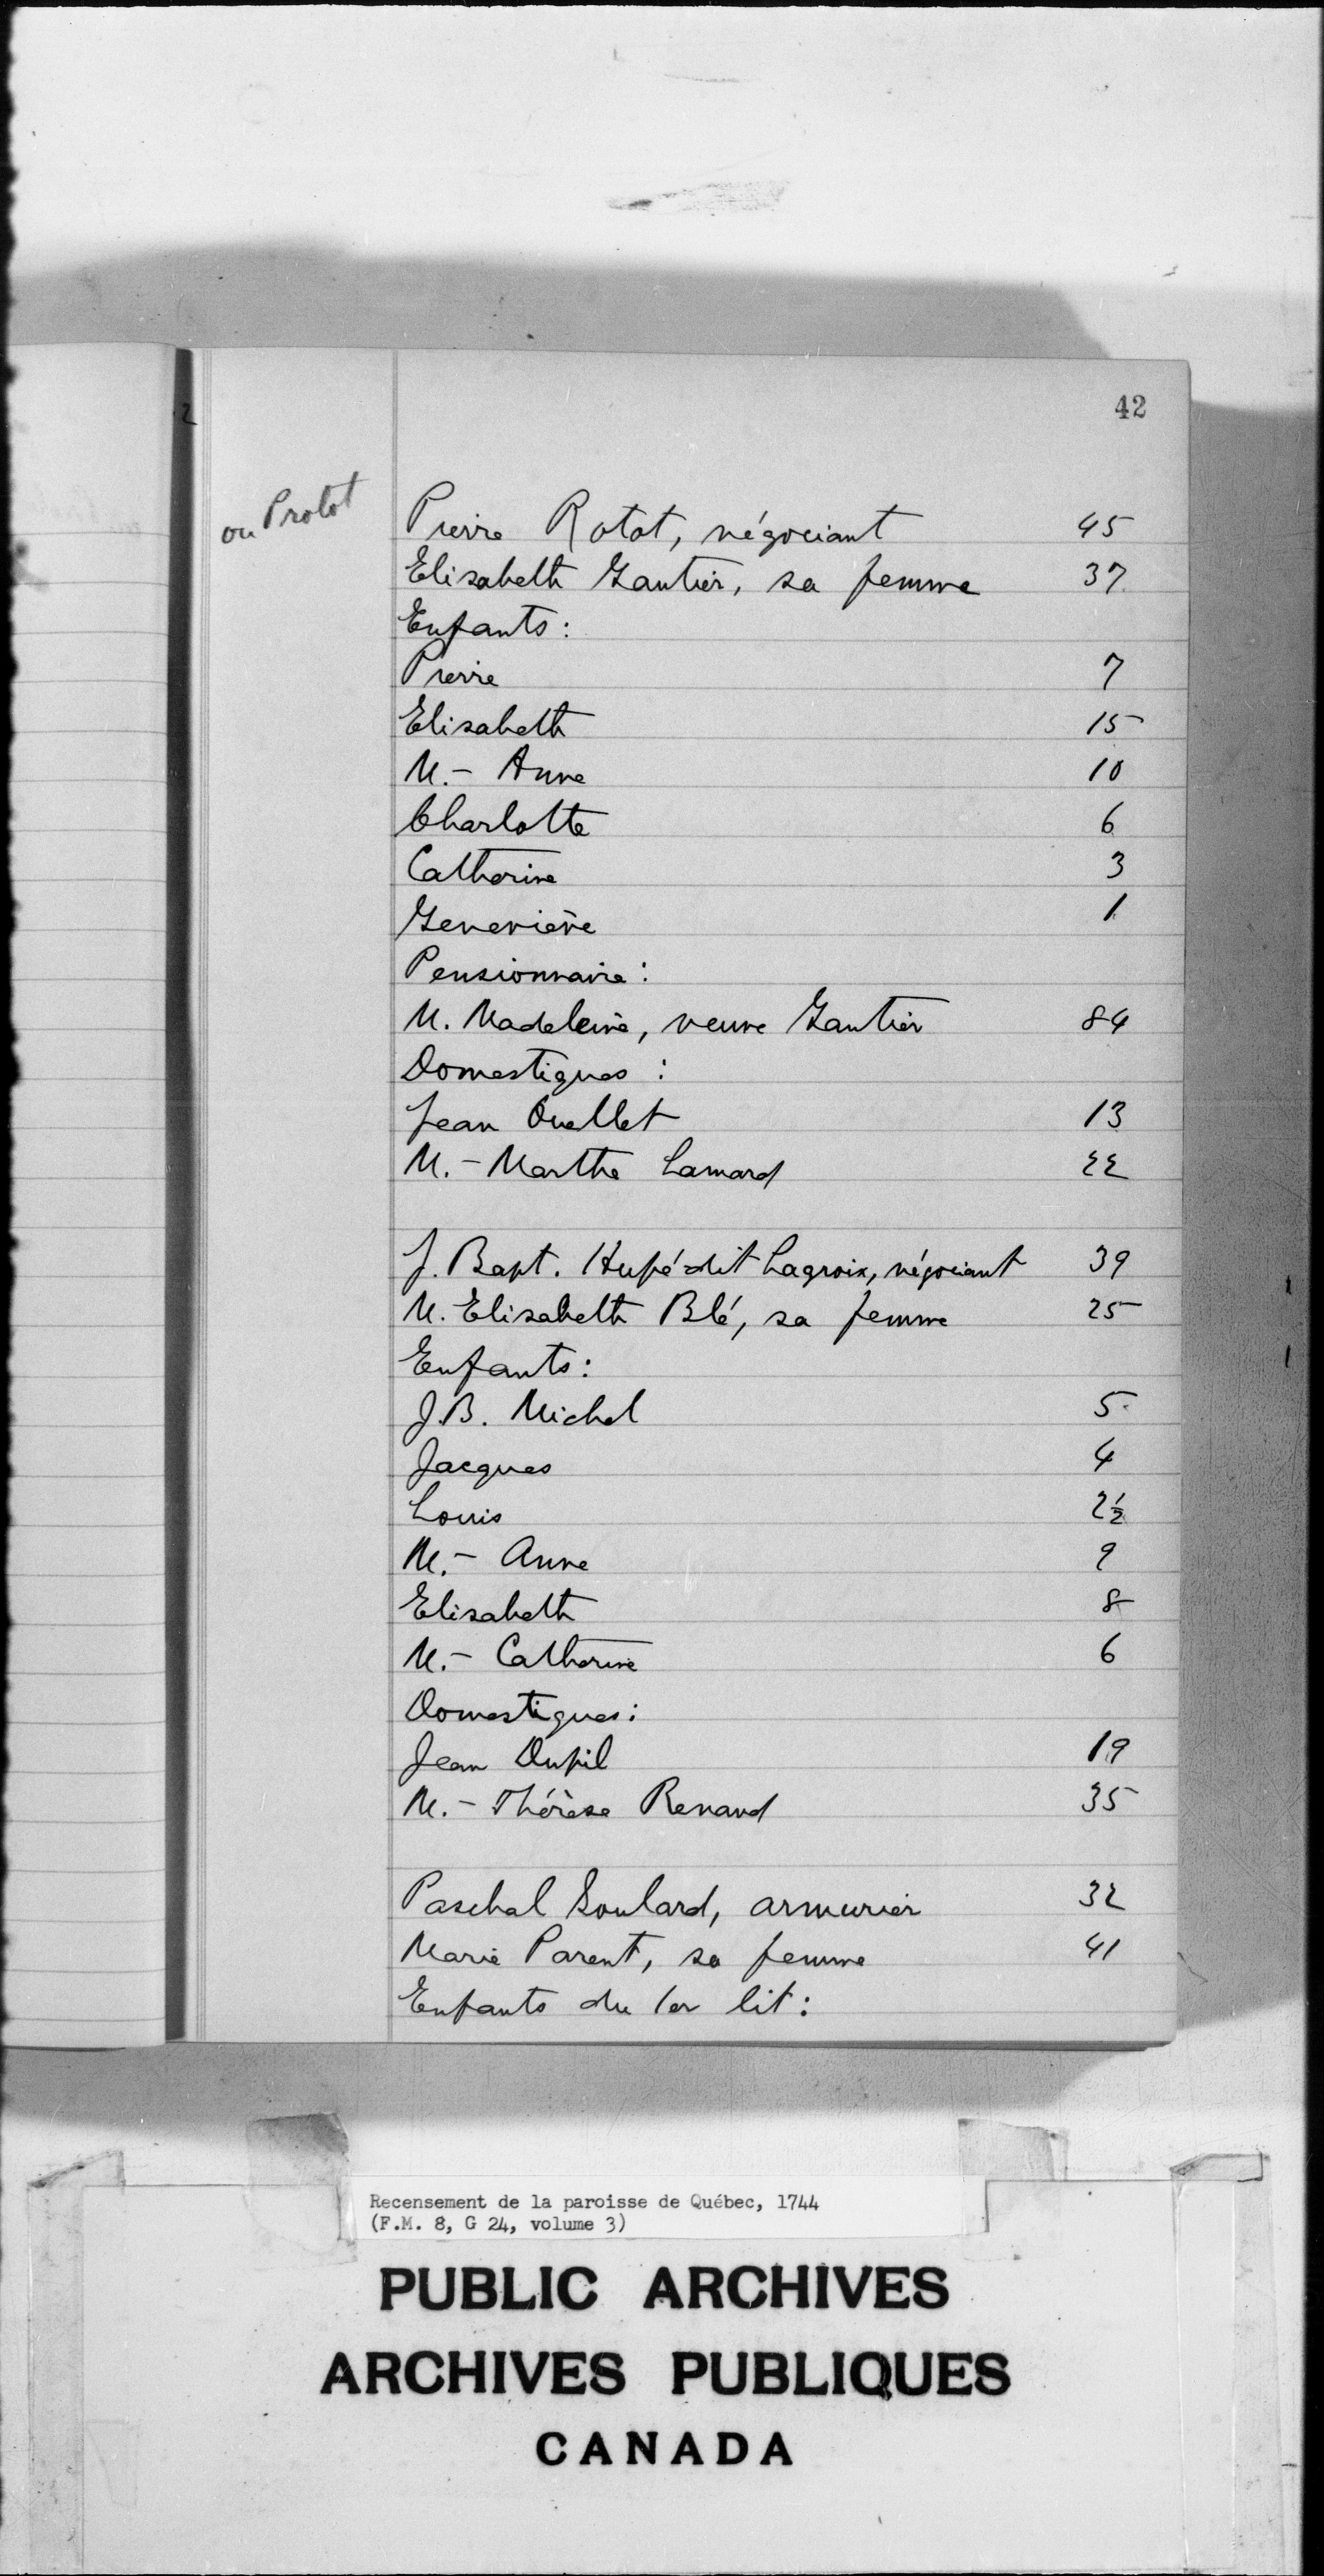 42
ou Protot
Pierre Rotot, négociant 45
Elisabeth Gautier, sa femme 37
Enfants:
Pierre 7
Elisabeth 15
M.- Anne 10
Charlotte 6
Catherine 3
Geneviève 1
Pensionnaire:
M. Madeleine, veuve Gautier 84
Domestiques:
Jean Ouellet 13
M.- Marthe Lamard 22
J. Bapt. Hupé dit Lagroix, négociant 39
M. Elisabeth Blé, sa femme 25
Enfants:
J.B. Michel 5
Jacques 4
Louis 2½
M.- Anne 9
Elisabeth 8
M.- Catherine 6
Domestiques:
Jean Dupil 19
M.- Thérèse Renaud 35
Paschal Soulard, armurier 32
Marie Parent, sa femme 41
Enfants du 1er lit:
Recensement de la paroisse de Québec, 1744
(F.M. 8, G 24, volume 3)
PUBLIC ARCHIVES
ARCHIVES PUBLIQUES
CANADA